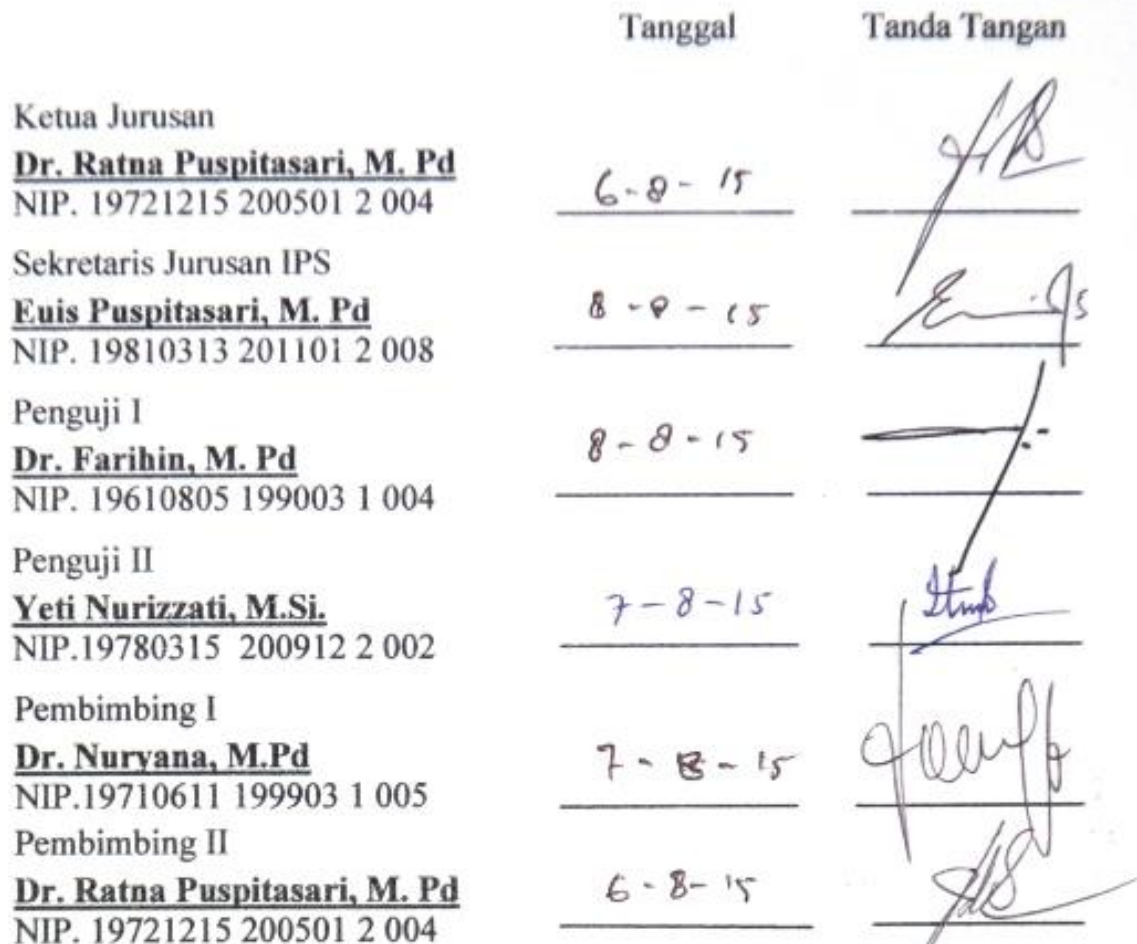 Tanggal Tanda Tangan
Ketua Jurusan
Dr. Ratna Puspitasari, M. Pd
NIP. 19721215 200501 2 004
6-8-15
Sekretaris Jurusan IPS
Euis Puspitasari, M. Pd
NIP. 19810313 201101 2 008
8-8-15
Penguji I
Dr. Farihin, M. Pd
NIP. 19610805 199003 1 004
8-8-15
Penguji II
Yeti Nurizzati, M.Si.
NIP.19780315 200912 2 002
7-8-15
Pembimbing I
Dr. Nuryana, M.Pd
NIP.19710611 199903 1 005
7-8-15
Pembimbing II
Dr. Ratna Puspitasari, M. Pd
NIP. 19721215 200501 2 004
6-8-15